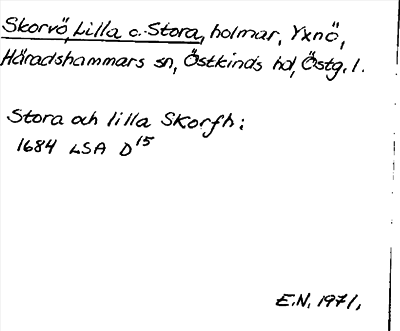 Skorvö, Lilla o. Stora, holmar, Yxnö,
Häradshammars sn, Östkinds hd, Östg. l.
Stora och lilla Skorfh:
1684 LSA D15
E.N. 1971.